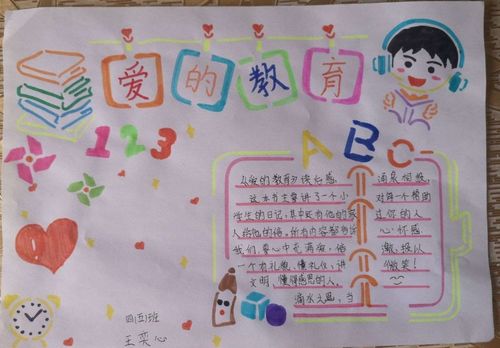 爱的教育
ABC
123
《爱的教育》读后感
这本书主要讲了一个小
学生的日记,其中还有他的家
人给他的信,所有内容都告诉
我们,要心中充满爱,做
一个有礼貌、懂礼仪、讲
文明、懂得感恩的人。
滴水之恩,当
涌泉相报。
对每一个帮助
过你的人
心怀感
激,报以
微笑!
四(5)班
王奕心